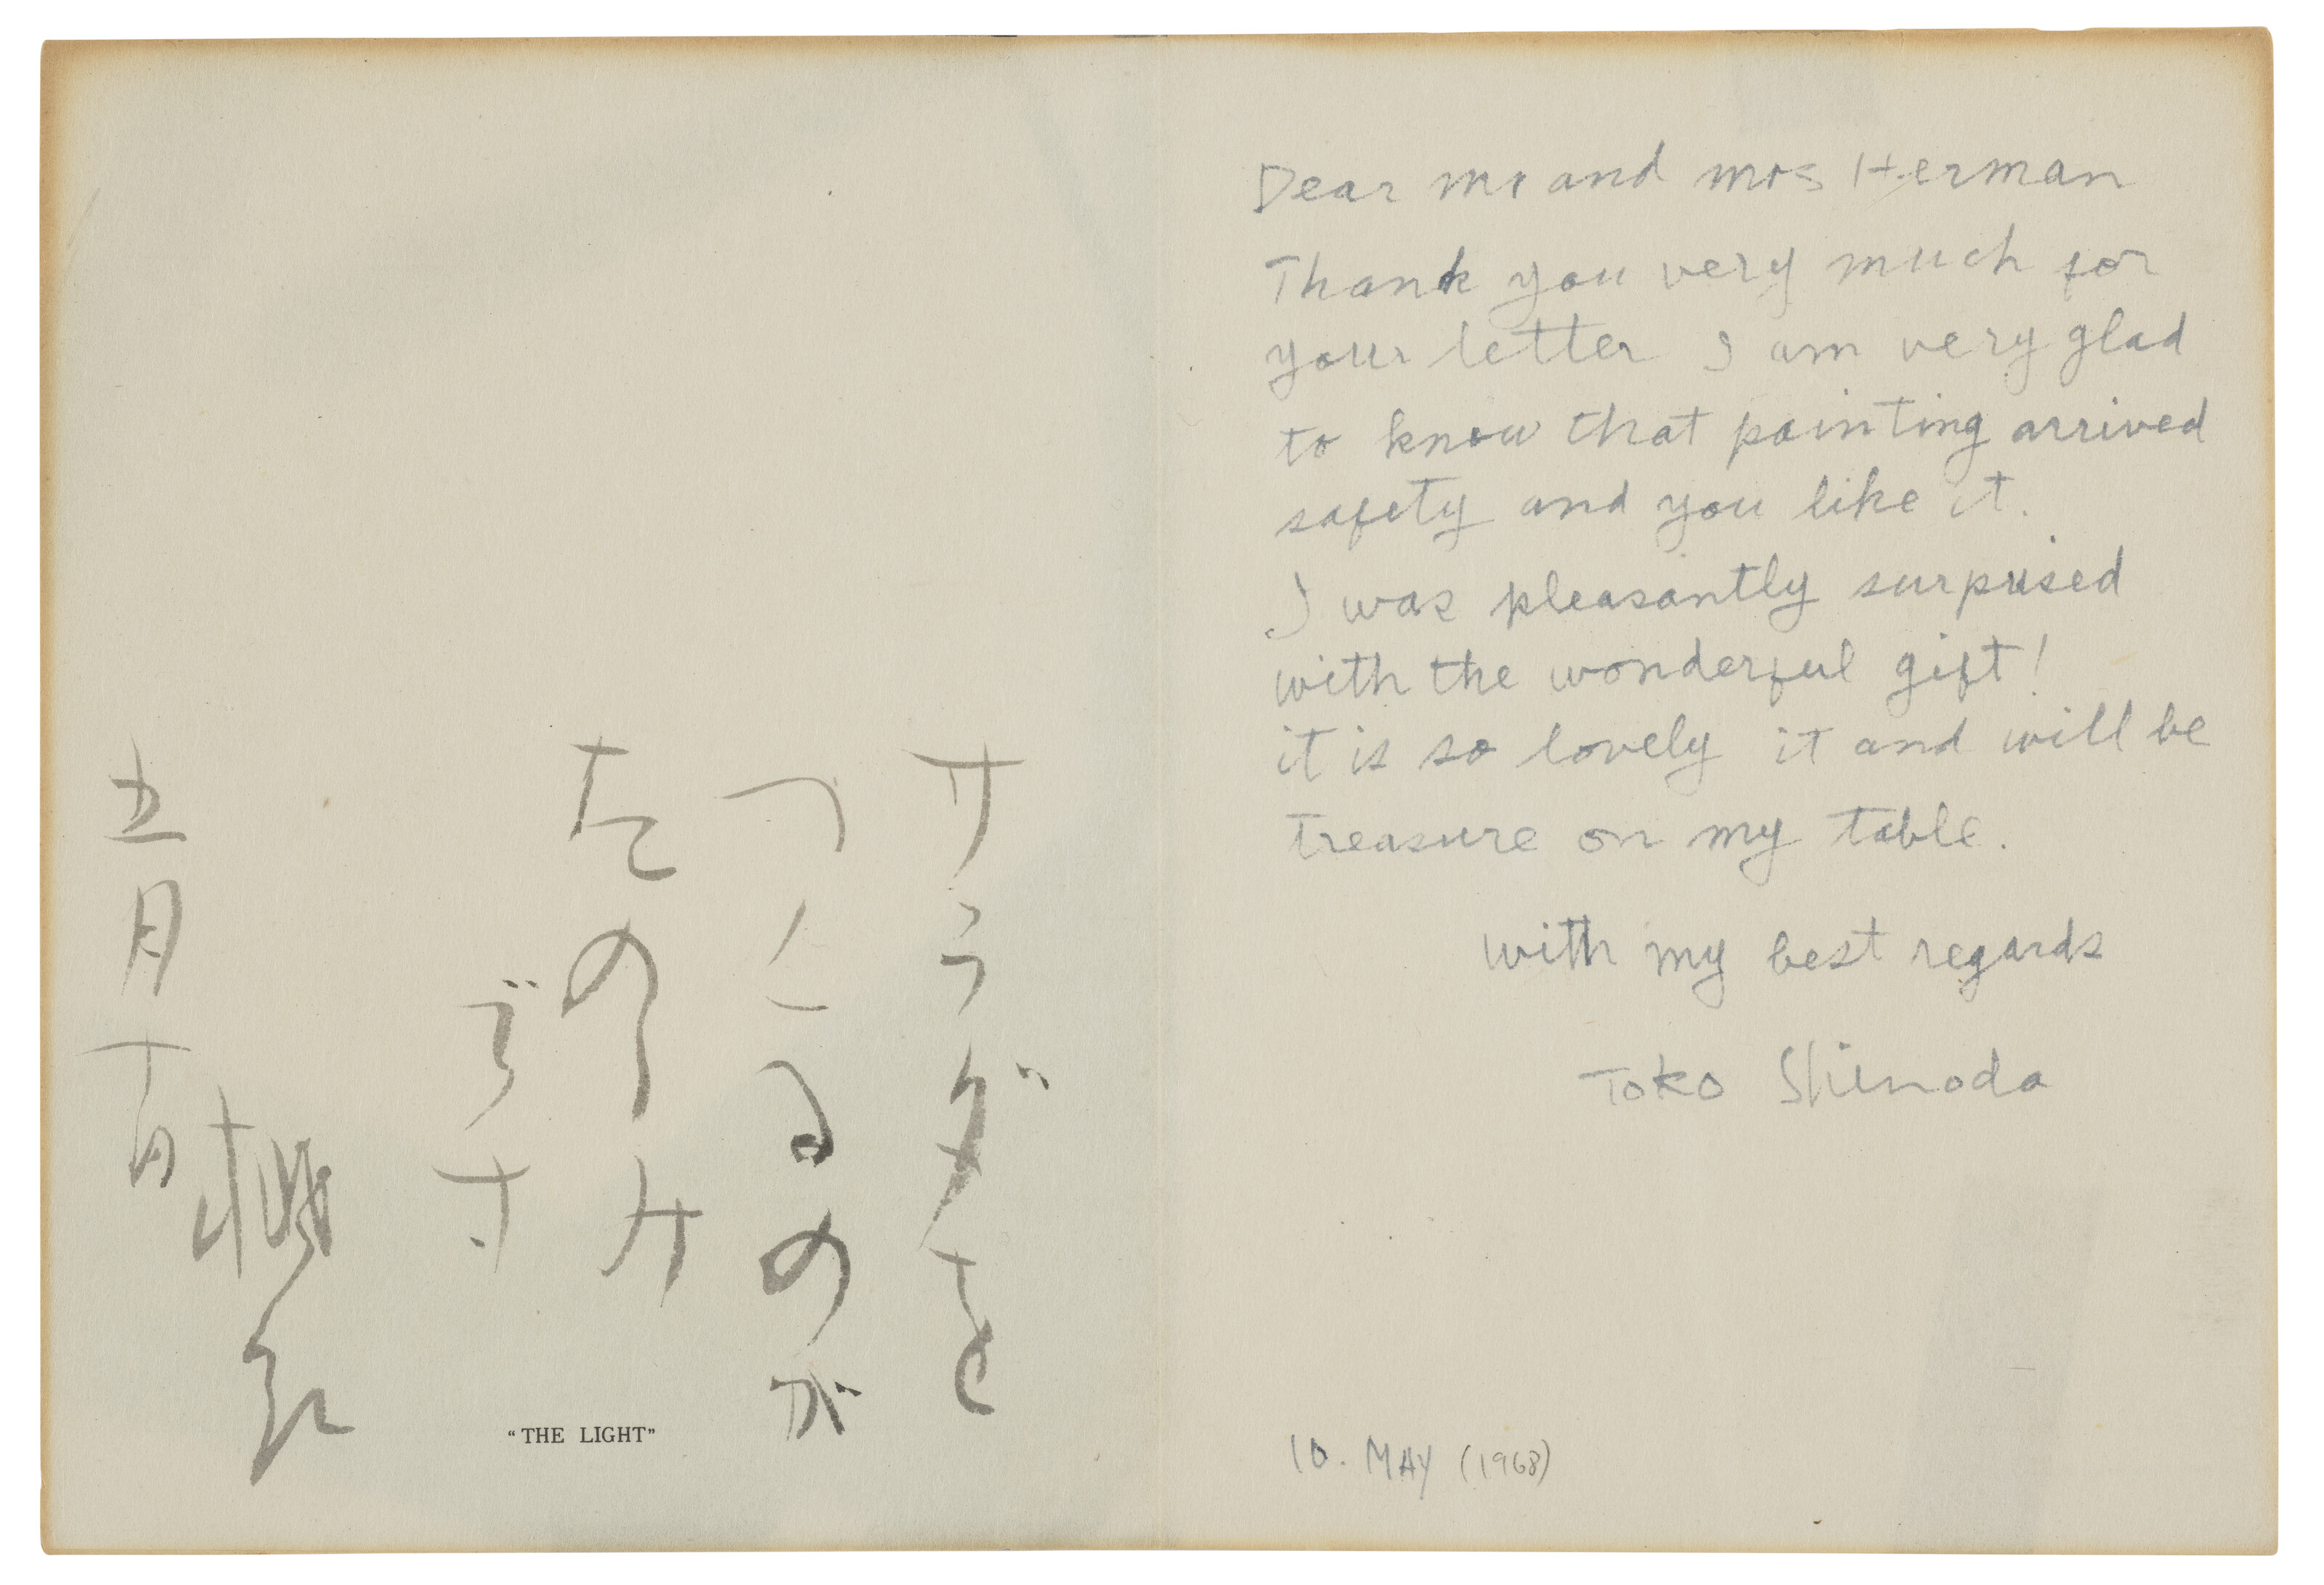 サラダを
つくるのが
たのしみ
です
桃紅
五月十日
"THE LIGHT"
Dear mr and mrs Herman
Thank you very much for
your letter I am very glad
to know that painting arrived
safety and you like it.
I was pleasantly surprised
with the wonderful gift!
it is so lovely it and will be
treasure on my table.
with my best regards
Toko Shinoda
10. MAY (1968)